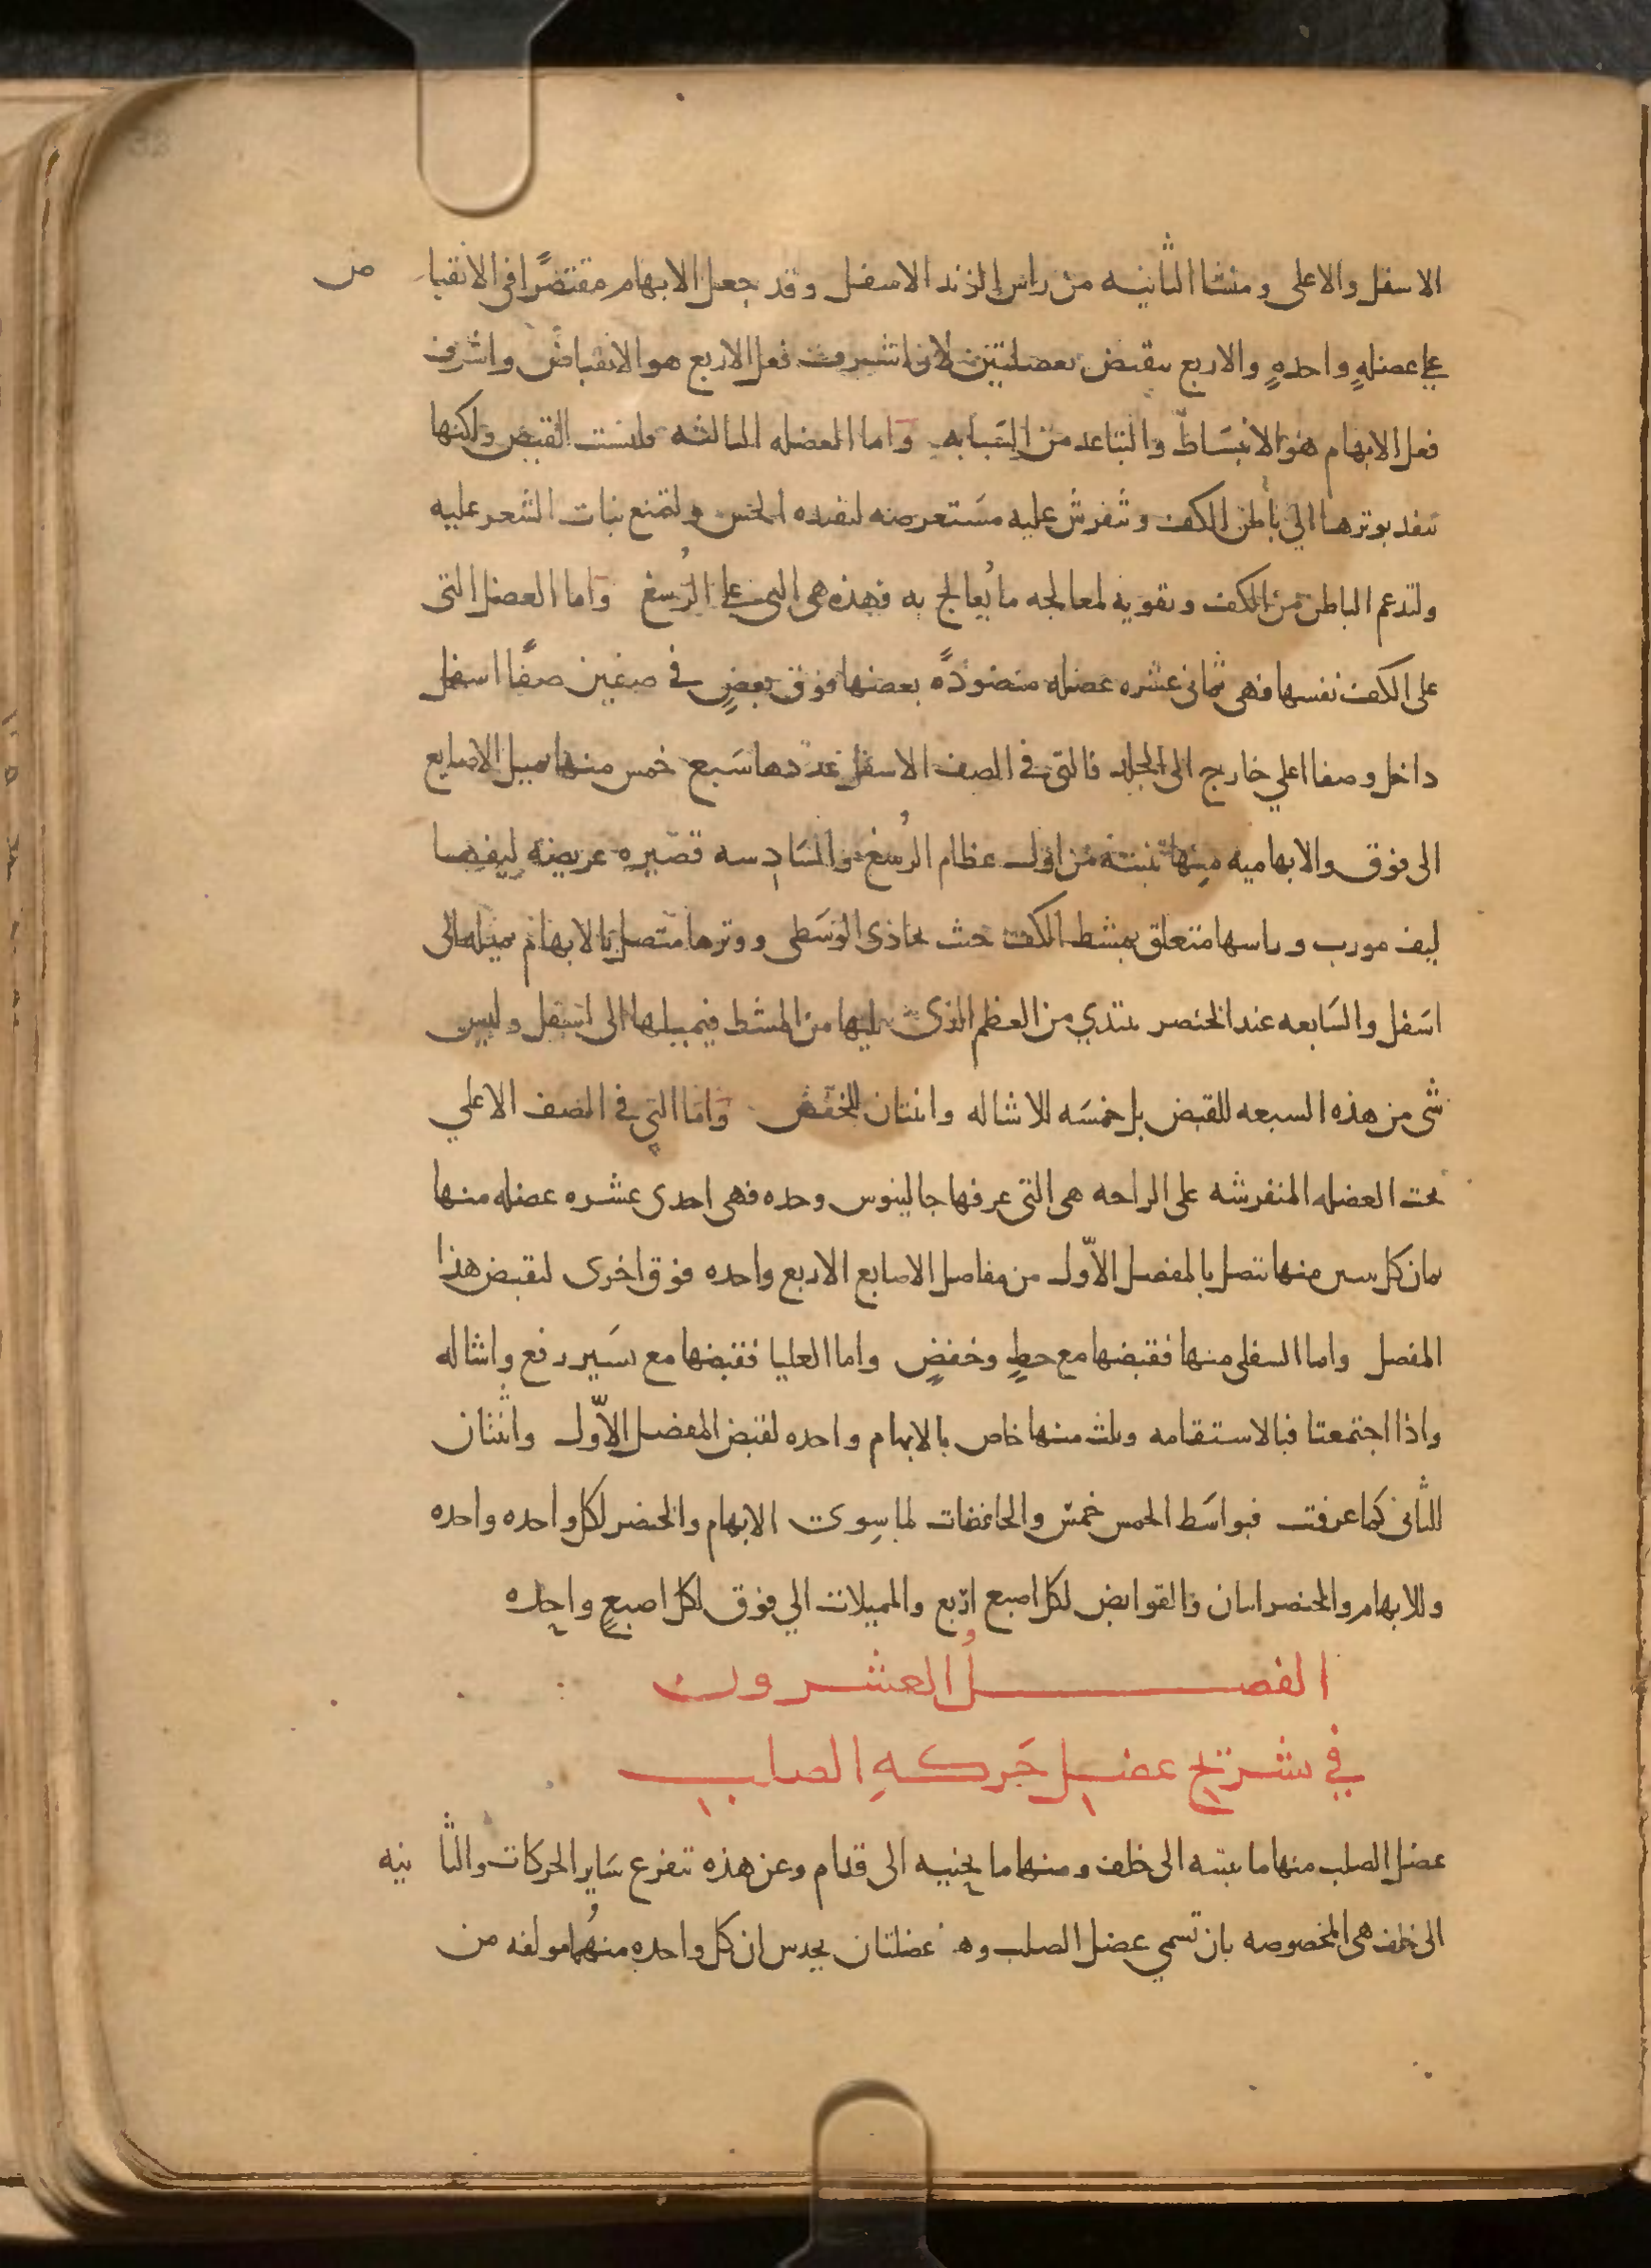 الاسفل والاعلى ومنشا الثانيه من راس الزند الاسفل وقد جعل الابهام مقتصرًا في الانقبا ض
على عضلهٍ واحدهٍ والاربع ينقبض بعضلتين لان اشرف فعل الاربع هو الانقباض واشرف
فعل الابهام هو الانبساط والتباعد من السبابه واما العضله الثالثه فليست للقبض ولكنها
تنفد بوترها الي باطن الكف وتنفرش عليه مستعرضه لتفيده الحس ولتمنع نبات الشعر عليه
ولتدعم الباطن من الكف وتقويه لمعالجه ما يُعالج به فهذه هي التي على الرُسغ واما العضل التي
على الكف نفسها فهي ثماني عشره عضله منضودةً بعضها فوق بعضٍ في صفين صفًا اسفل
داخل وصفا اعلي خارج الى الجلد فالتي في الصف الاسفل عددها سبع خمس منها تميل الاصابع
الى فوق والابهاميه منها تنبت من اول عظام الرُسغ والسادسه قصيره عريضه ليفها
ليف مورب وراسها متعلق بمشط الكف حيث يحاذى الوسطى ووترها متصل بالابهام تميله الى
اسفل والسابعه عند الخنصر تبتدي من العظم الذى يليها من المشط فيميلها الى اسفل وليس
شى من هذه السبعه للقبض بل خمسه للاشاله واثنتان للخفض واما التي في الصف الاعلي
تحت العضله المنفرشه على الراحه هي التي عرفها جالينوس وحده فهي احدى عشره عضله منها
ثمان كل ثنتين منها تتصل بالمفصل الاوّل من مفاصل الاصابع الاربع واحده فوق اخرى لتقبض هذا
المفصل واما السفلى منها فقبضها مع حطٍ وخفضٍ واما العليا فقبضها مع يسير رفع واشاله
واذا اجتمعتا فبالاستقامه وثلث منها خاص بالابهام واحده لقبض المفصل الاوّل واثنتان
للثانى كما عرفت فبواسط الخمس خمس والخافضات لما سوى الابهام والخنصر لكل واحده واحده
وللابهام والخنصر اثنان والقوابض لكل اصبع اربع والمميلات الي فوق لكل اصبعٍ واحده
الفصلُ العشرون
في تشريح عضل حَركهِ الصلب
عضل الصلب منها ما يثنيه الى خلف ومنها ما يحنيه الى قدام وعن هذه تتفرع ساير الحركات والثا نيه
الى خلف هي المخصوصه بان تسمي عضل الصلب وهـ عضلتان يحدس ان كل واحده منهُما مولفه من